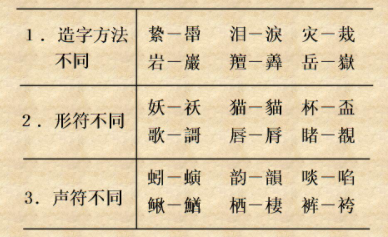 1．造字方法 絷－馽 泪－淚 灾－烖
不同 岩－巖 羶－羴 岳－嶽
2．形符不同 妖－祅 猫－貓 杯－盃
歌－謌 唇－脣 睹－覩
3．声符不同 蚓－螾 韵－韻 啖－啗
鳅－鰌 栖－棲 裤－袴